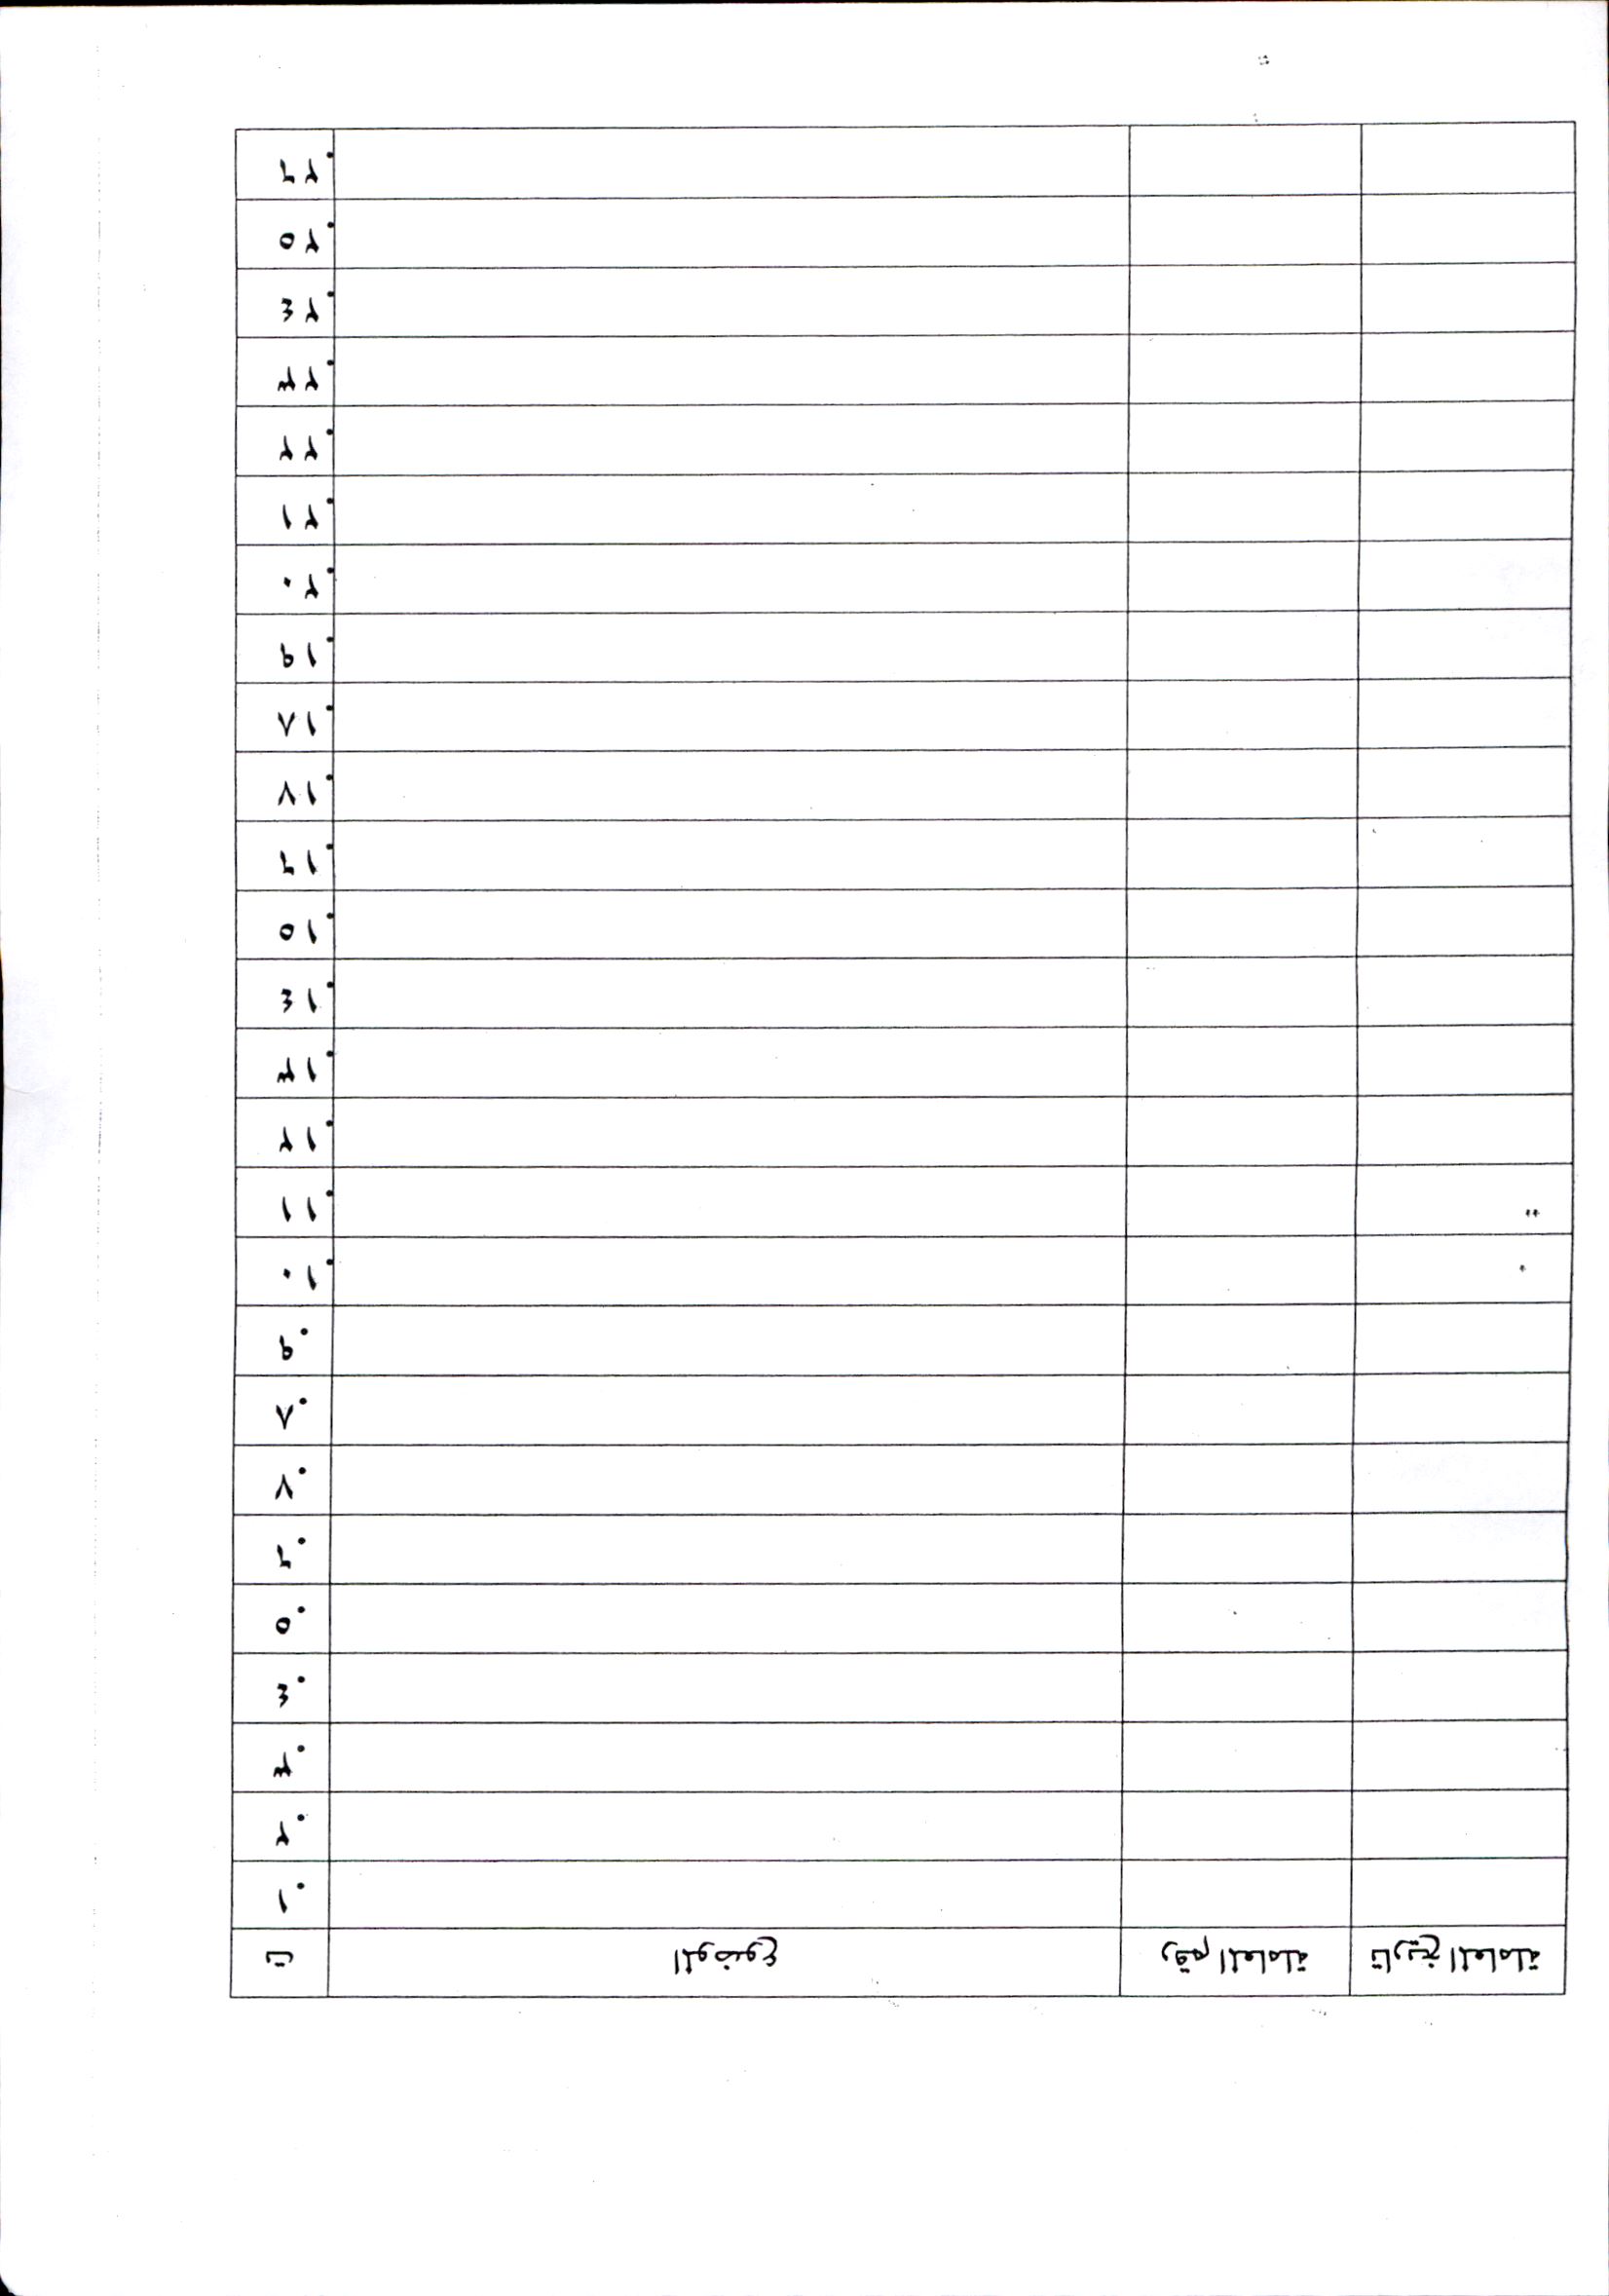 ت الموضوع رقم المعاملة تاريخ المعاملة
١.
٢.
٣.
٤.
٥.
٦.
٧.
٨.
٩.
١٠.
١١.
١٢.
١٣.
١٤.
١٥.
١٦.
١٧.
١٨.
١٩.
٢٠.
٢١.
٢٢.
٢٣.
٢٤.
٢٥.
٢٦.